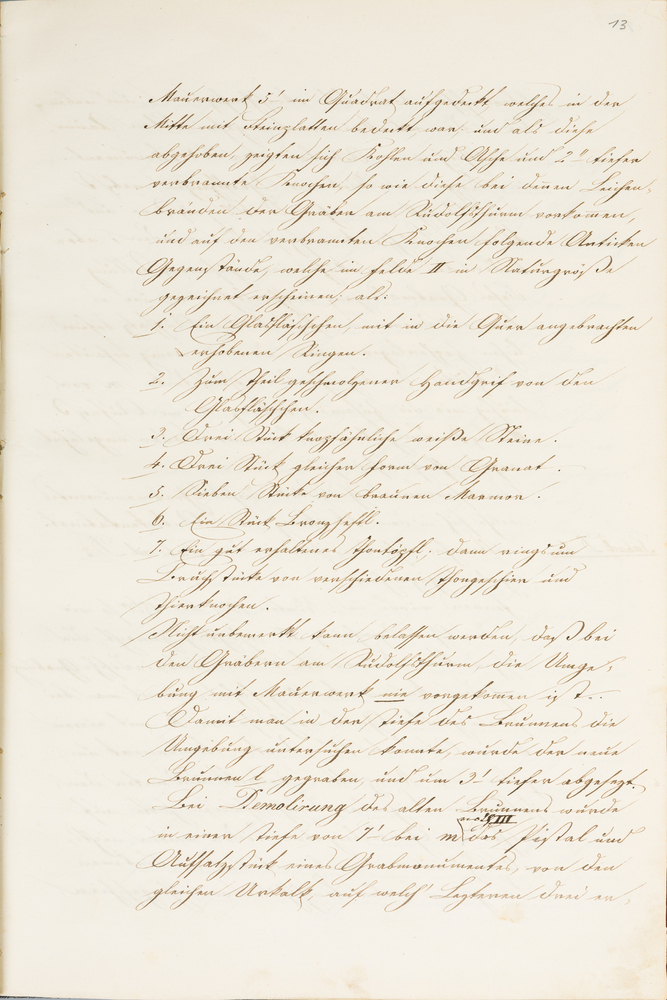 13
Mauerwerk 5' im Quadrat aufgedeckt welches in der
Mitte mit Steinplatten bedeckt war, und als diese
abgehoben, zeigten sich Kohlen und Asche und 2" tiefer
verbrannte Knochen, so wie diese bei denen Leichen-
bränden der Gräber am Rudolfsthurm vorkomen,
und auf den verbrannten Knochen folgende Anticken
Gegenstände, welche im Felde II in Naturgröße
gezeichnet erscheinen; als:
1. Ein Glasfläschchen, mit in die Quer angebrachten
erhobenen Ringen.
2. Zum Theil geschmolzener Handgrif von den
Glasfläschchen.
3. Drei Stück knopfähnliche weiße Steine.
4. Drei Stück gleicher Form von Granat.
5. Sieben Stücke von braunen Marmor.
6. Ein Stück Bronzheftl.
7. Ein gut erhaltenes Thontöpfl; dann ringsum
Bruchstücke von verschiedenen Thongeschirr und
Thierknochen.
Nicht unbemerkt kann belassen werden, daß bei
den Gräbern am Rudolfsthurm, die Umge-
bung mit Mauerwerk nie vorgekomen ist.
Damit man in der Tiefe des Brunnens die
Umgebung untersuchen konnte, wurde der neue
Brunnen l gegraben und um 3' tiefer abgesezt.
Bei Demolirung des alten Brunnens wurde
in einer Tiefe von 7' bei m das Pistal und
III
Aufsatzstück eines Grabmonumentes, von den
gleichen Urkalk, auf welch' Lezteren drei er-